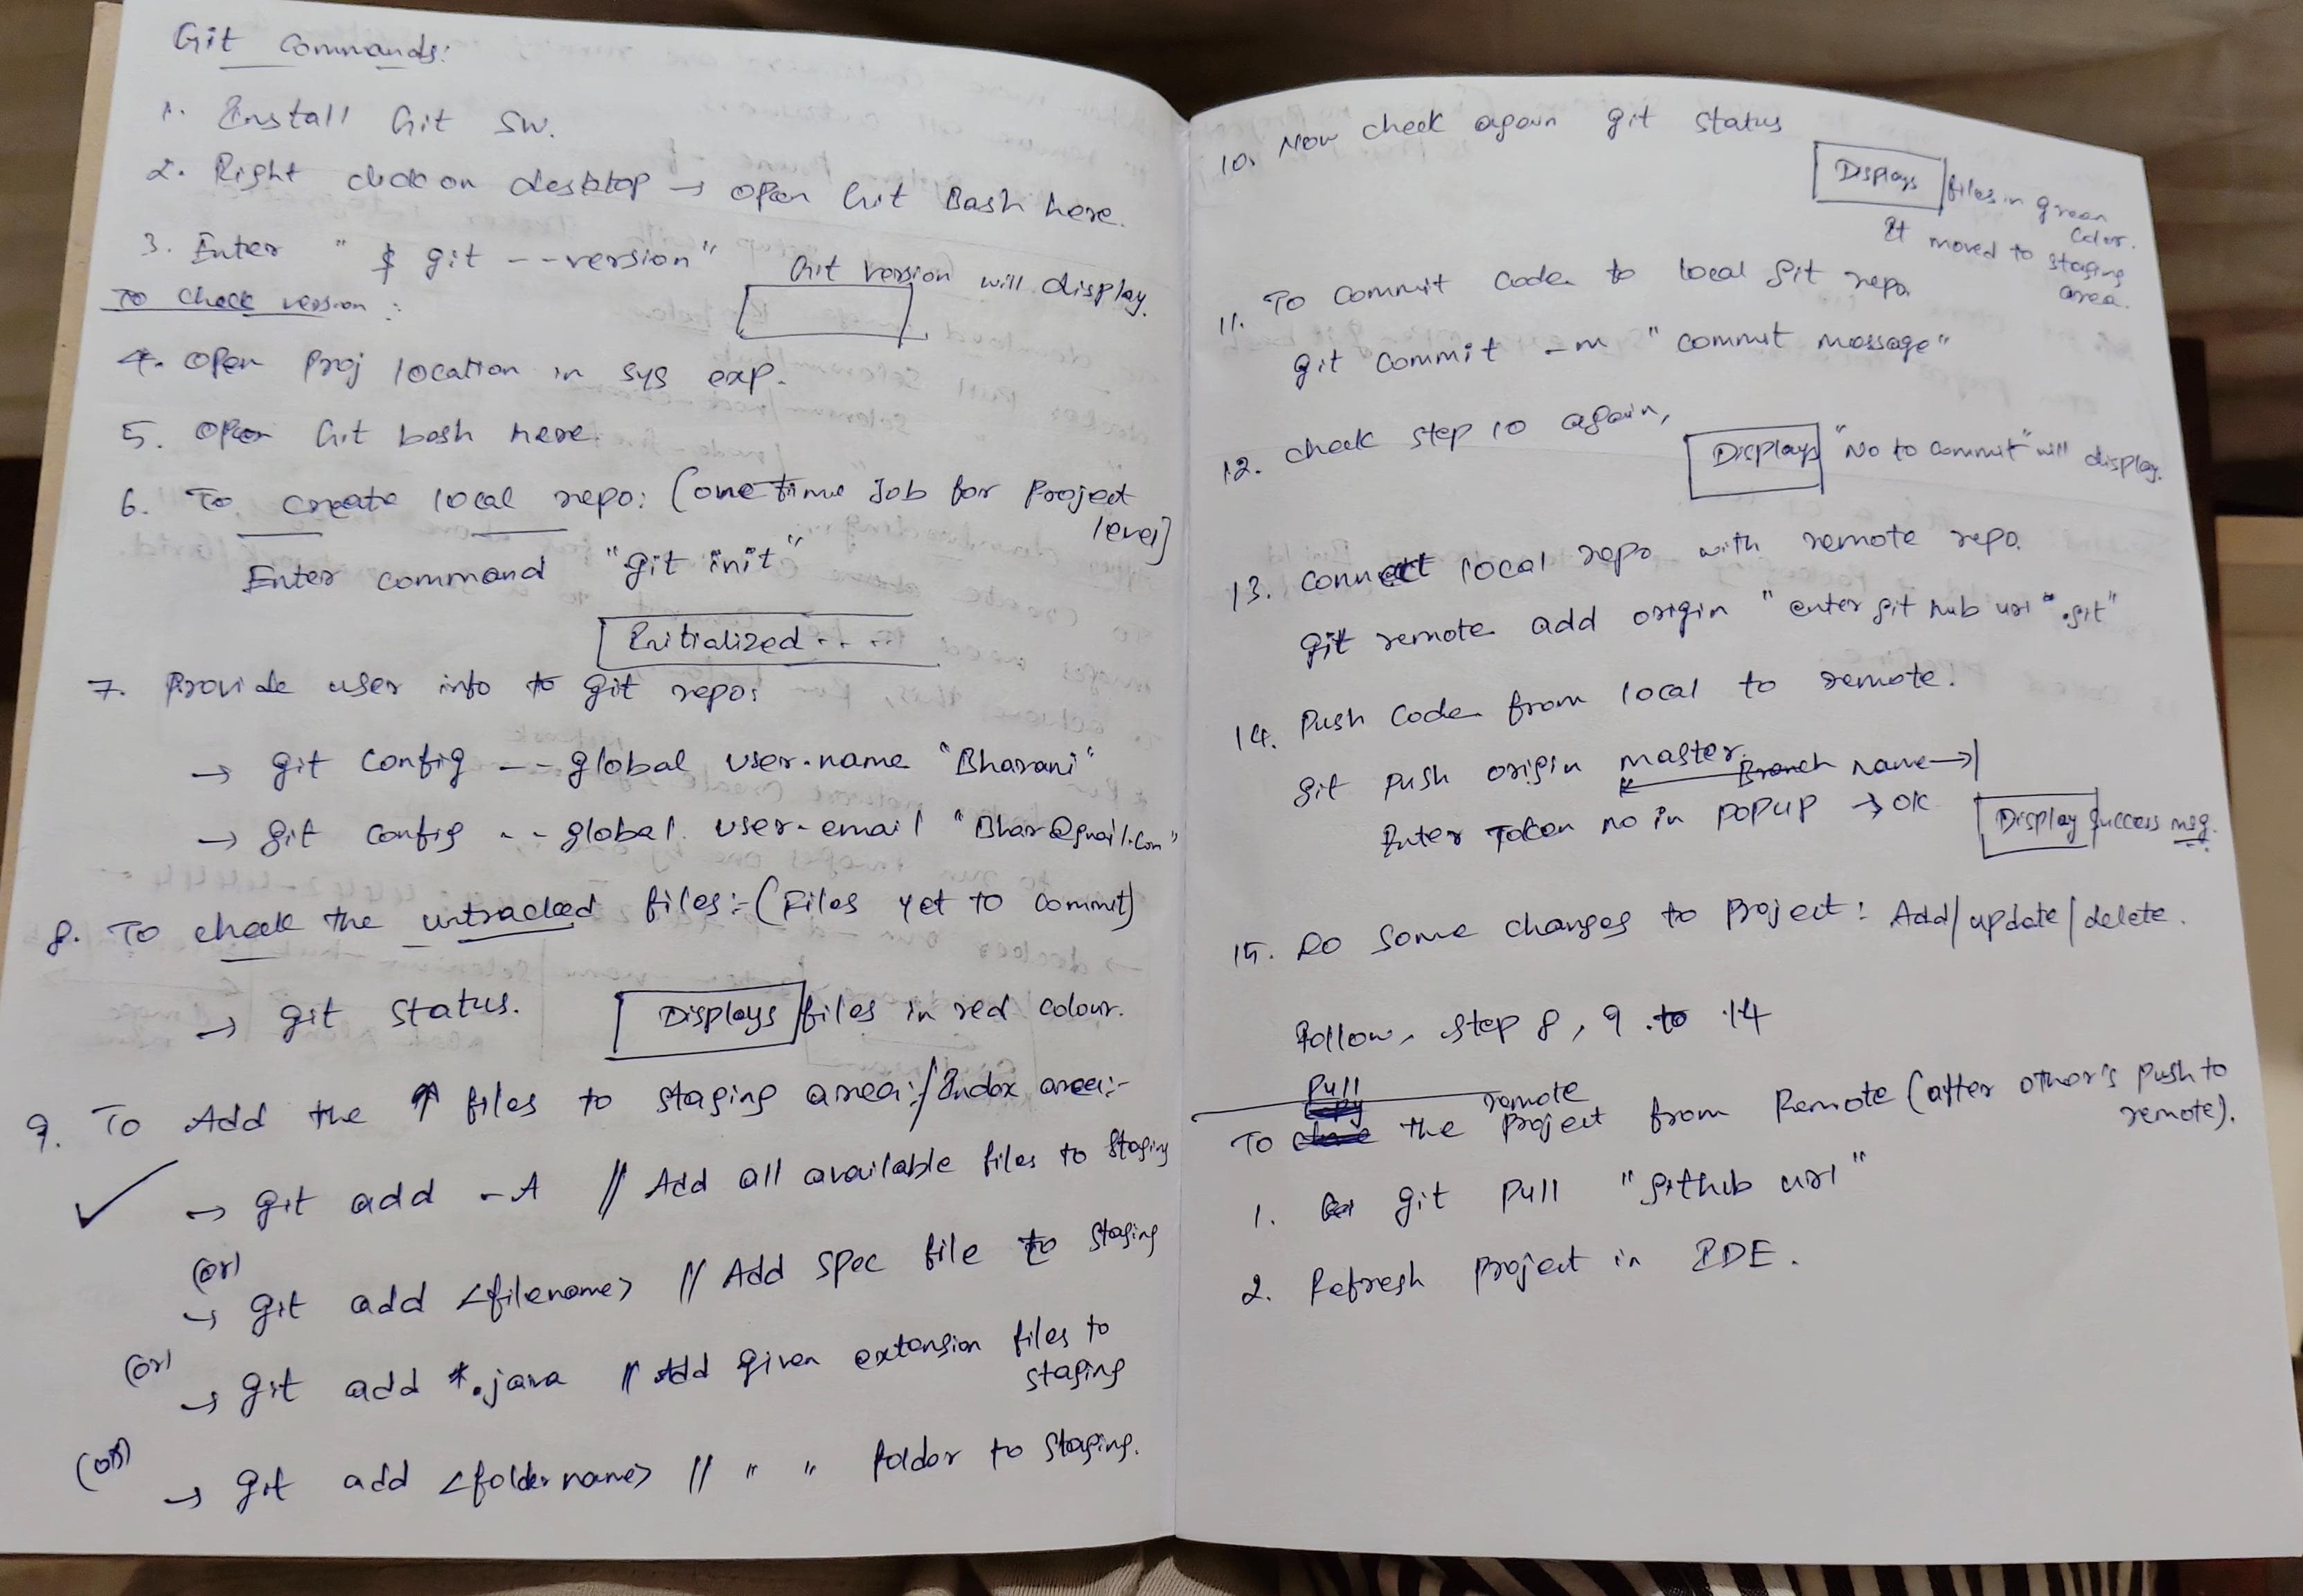 Git Commands:
1. Install Git SW.
2. Right click on desktop → open Git Bash here.
3. Enter "$ git --version" Git version will display.
To check version :
4. Open Proj location in sys exp.
5. Open Git bash here.
6. To create local repo: (one time Job for Project
level)
Enter command "git init"
Initialized . . . .
7. Provide user info to git repo:
→ git config --global user.name "Bharani"
→ git config --global user.email "Bhar@gmail.com"
8. To check the untracked files:- (Files yet to commit)
→ git status. Displays files in red colour.
9. To Add the ↑ files to staging area:/Index area:-
✓ → git add -A // Add all available files to staging
(or)
→ git add <filename> // Add spec file to staging
(or) → git add *.java // Add given extension files to
staging
(or) → git add <folder name> // " " folder to staging.
10. Now check again git status
Displays files in green
color.
It moved to staging
area.
11. To commit code to local git repo
git commit -m "commit message"
12. check step 10 again,
Displays "No to commit" will display.
13. connect local repo with remote repo.
git remote add origin "enter git hub url .git"
14. Push code from local to remote.
git push origin master. Branch name →
Enter Token no in popup → OK Display success msg.
15. Do some changes to project: Add/update/delete.
Follow, step 8, 9 to 14
Pull
remote
To the project from Remote (after other's push to
remote).
1. git pull "github url"
2. Refresh project in IDE.